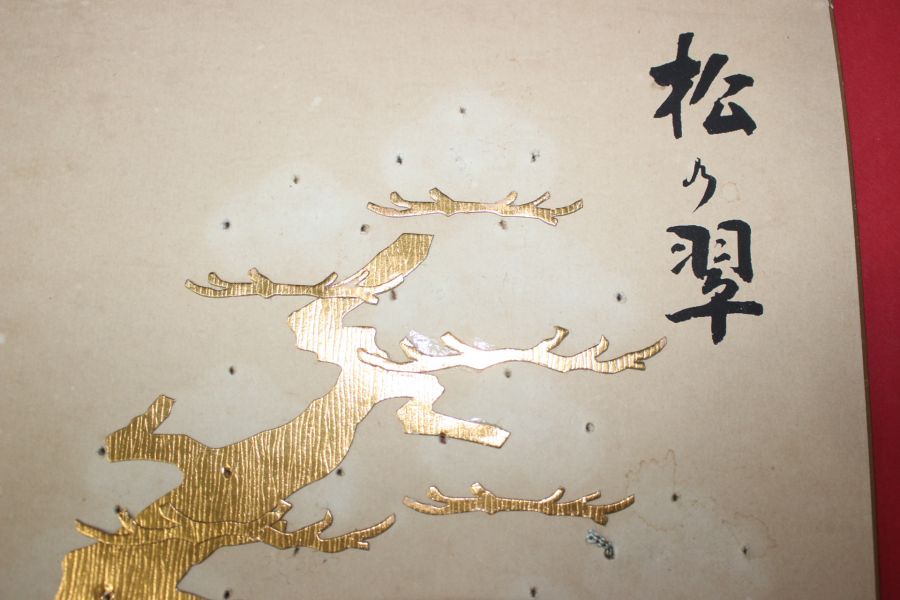 松乃翠